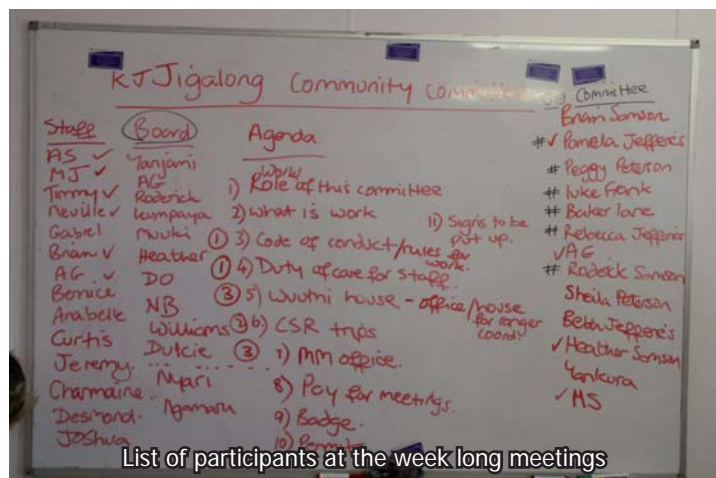 KJ Jigalong Community
Committee
Staff
AS ✓
MJ ✓
Timmy ✓
Neville ✓
Gabiel
Brian ✓
AG ✓
Bernice
Anabelle
Curtis
Jeremy.
Charmaine
Desmond.
Joshua
Board
Yanjami
AG
Roderick
Kumpaya
Muuki
Heather
DO
NB
Williams
Dulcie
Nyari
Ngamaru
Agenda
work
1) Role of this committee
2) What is work
① 3) Code of conduct/rules for
work.
① 4) Duty of care for staff.
③ 5) Wuutni house - office/house
for ranger
coord.
② 6) CSR trips
③ 7) MM office.
8) Pay for meetings.
9) Badge.
10)
11) Signs to be
put up.
Committee
Brian Samson
#✓ Pamela Jefferies
# Peggy Peterson
# Luke Frank
# Baker Lane
# Rebecca Jefferies
✓ AG
# Roderick Samson
Sheila Peterson
Beth Jefferies
✓ Heather Samson
Yankura
✓ MS
List of participants at the week long meetings